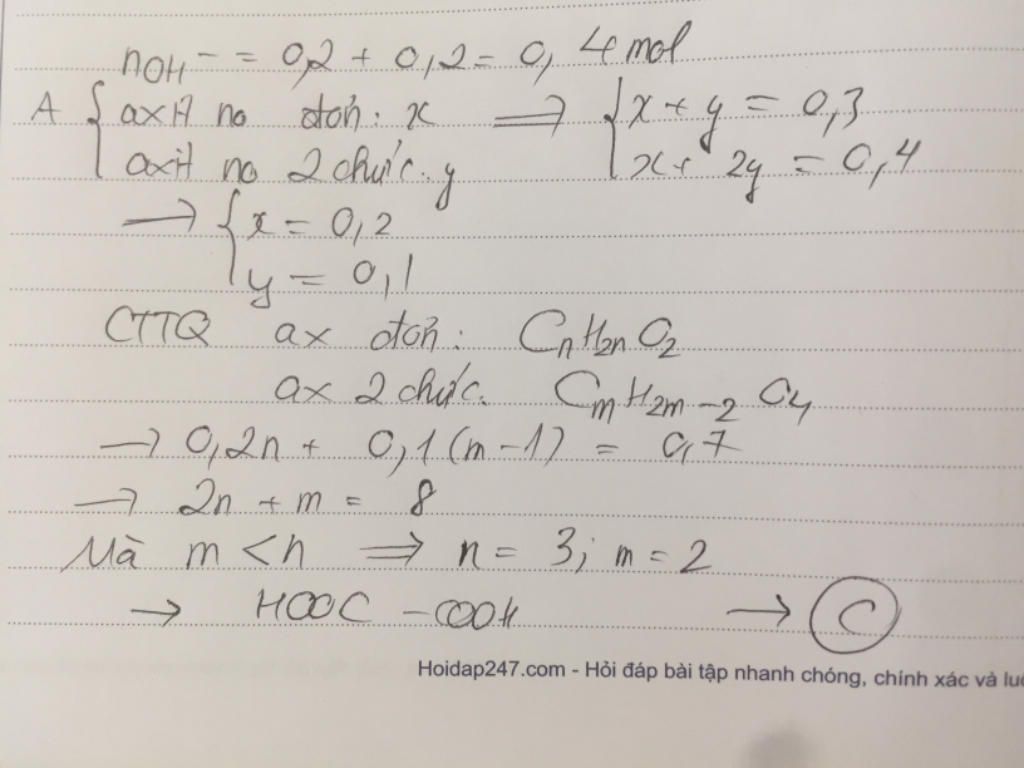 nOH- = 0,2 + 0,2 = 0,4 mol
A { axit no đơn: x ⟹ { x + y = 0,3
axit no 2 chức: y x + 2y = 0,4
→ { x = 0,2
y = 0,1
CTTQ ax đơn: CnH2nO2
ax 2 chức: CmH2m-2O4
→ 0,2n + 0,1(m-1) = 0,7
→ 2n + m = 8
Mà m < n ⟹ n = 3; m = 2
→ HOOC - COOH → C
Hoidap247.com - Hỏi đáp bài tập nhanh chóng, chính xác và